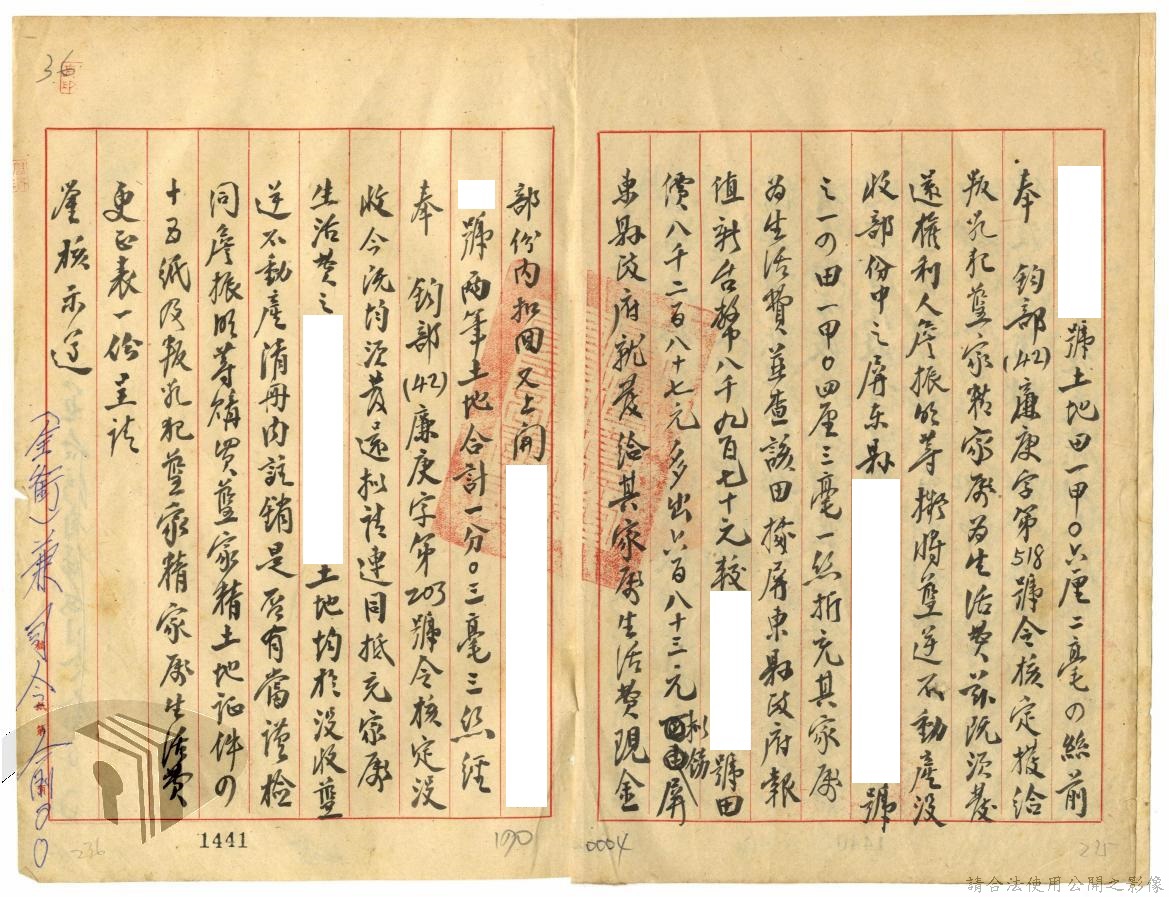 號土地田一甲〇六厘二毫四絲前
奉 鈞部(42)廉庚字第518號令核定撥給
叛乱犯藍家精家屬為生活費茲既須發
還權利人詹振明等擬將藍逆不動產沒
收部份中之屏东縣 號
之一四田一甲〇四厘三毫一絲折充其家屬
為生活費並查該田據屏東縣政府報
值新台幣八千九百七十元較 號田
價八千二百八十七元多出六百八十三元 擬飭屏
東縣政府就發給其家屬生活費現金
部份內扣回又上開
號兩筆土地合計一分〇三毫三絲經
奉 鈞部(42)廉庚字第203號令核定沒
收今既均須發還擬請連同抵充家屬
生活費之 土地均於沒收藍
逆不動產清冊內註銷是否有當謹檢
同詹振明等購買藍家精土地証件四
十五紙及叛乱犯藍家精家屬生活費
更正表一份呈請
鑒核示遵
(全銜)兼司令 〇〇
36
1441
190
0004
236
235
請合法使用公開之影像